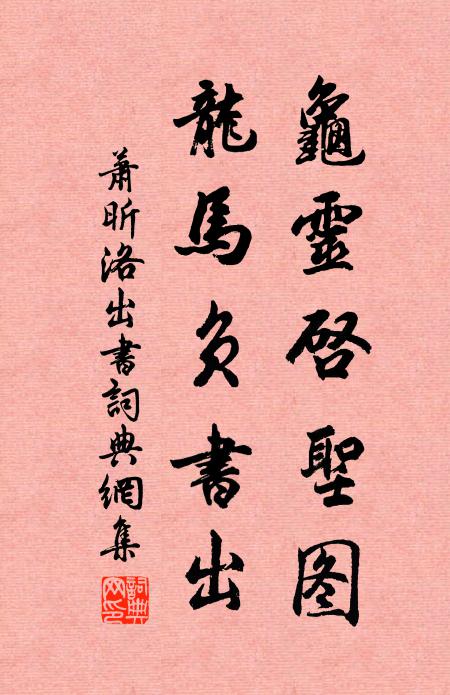 龜靈啓聖图
龍馬負書出
蕭昕洛出書詞典網集
詞典网印